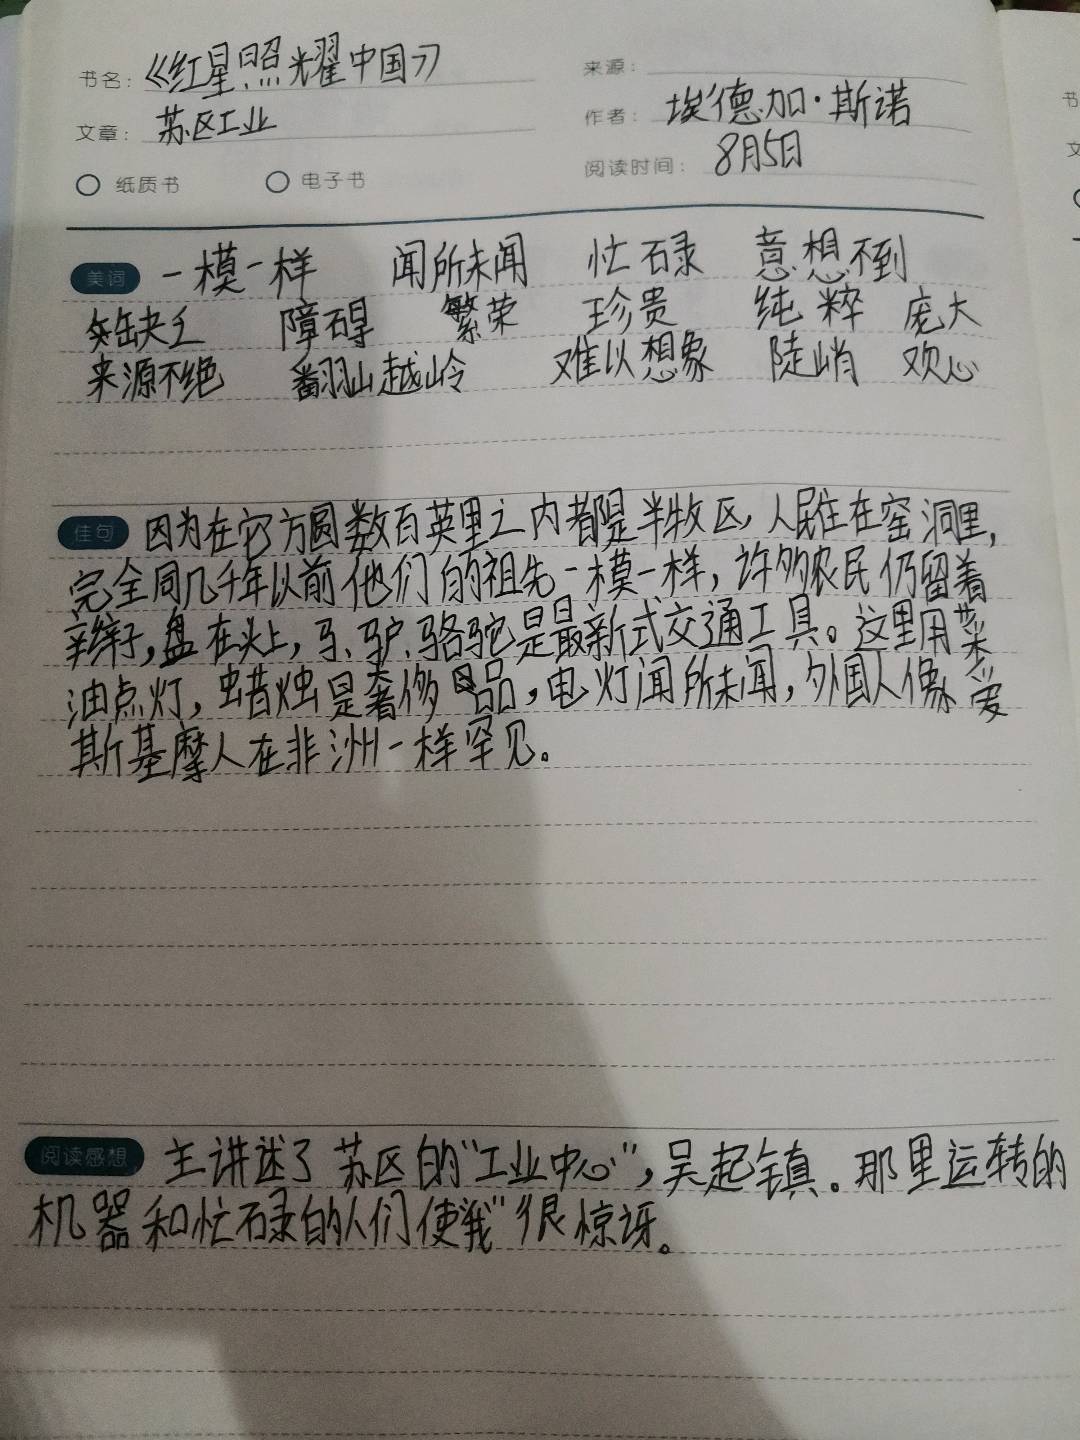 书名：《红星照耀中国》 来源：
文章：苏区工业 作者：埃德加·斯诺
纸质书 电子书 阅读时间：8月5日
美词 一模一样 闻所未闻 忙碌 意想不到
缺乏 障碍 繁荣 珍贵 纯粹 庞大
来源不绝 翻山越岭 难以想象 陡峭 欢心
佳句 因为在它方圆数百英里之内都是半牧区，人民住在窑洞里，
完全同几千年以前他们的祖先一模一样，许多农民仍留着
辫子，盘在头上，马、驴、骆驼是最新式交通工具。这里用菜
油点灯，蜡烛是奢侈品，电灯闻所未闻，外国人像爱
斯基摩人在非洲一样罕见。
阅读感想 主讲述了苏区的“工业中心”，吴起镇。那里运转的
机器和忙碌的人们使“我”很惊讶。
书
文